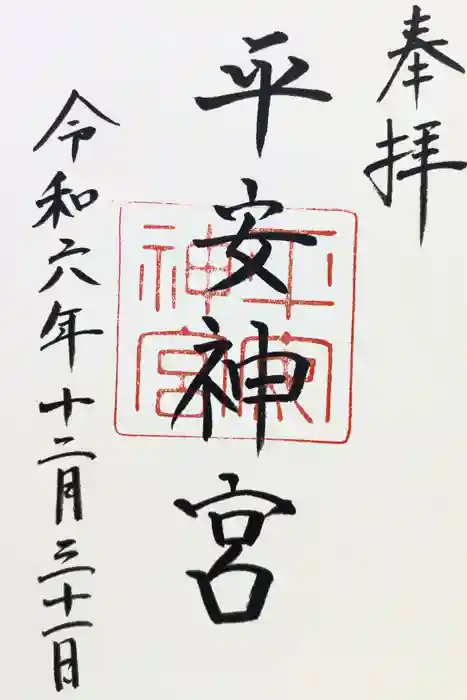 奉拝
平安神宮
令和六年十二月三十一日
平安神宮